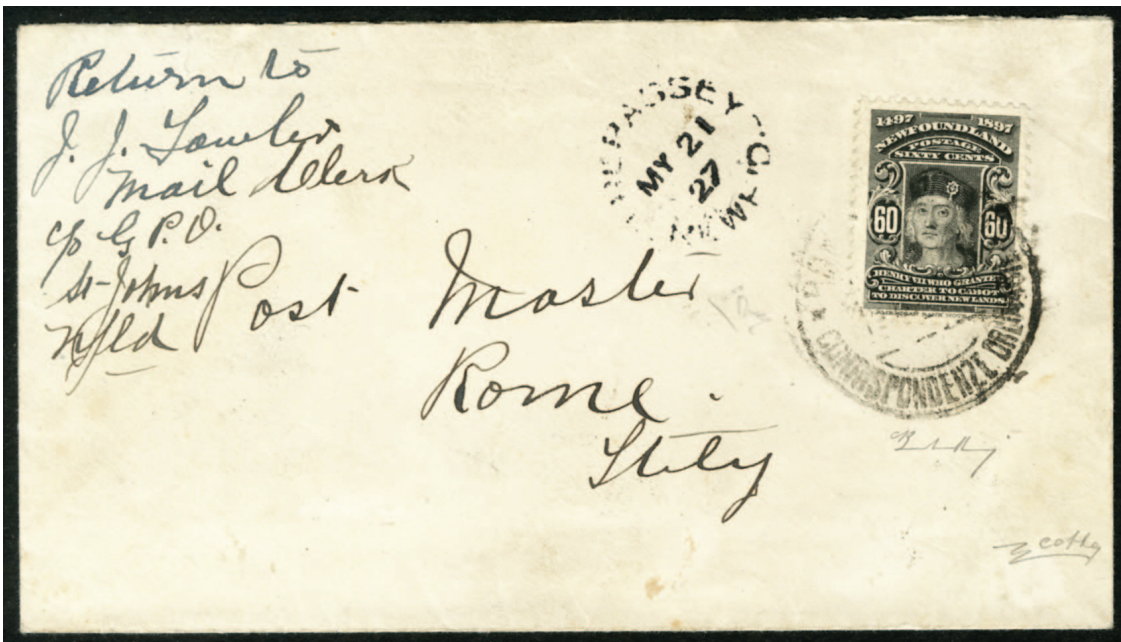 Return to
J. J. Fowler
Mail Clerk
c/o G. P. O.
St Johns
Nfld
Post Master
Rome.
Italy
REPASSEY
MY 21
27
NEWF'D
1497 1897
NEWFOUNDLAND
POSTAGE
SIXTY CENTS
60 60
HENRY VII WHO GRANTE
CHARTER TO CABOT
TO DISCOVER NEW LANDS.
CORRISPONDENZE